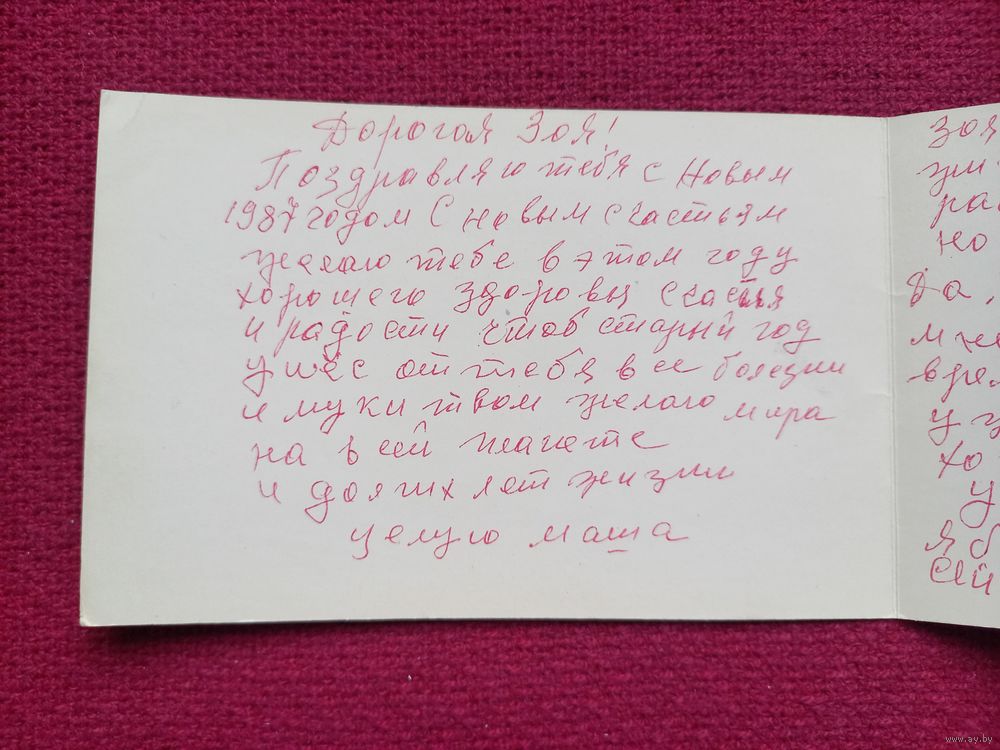 Дорогая Зоя!
Поздравляю тебя с Новым
1987 годом С новым счастьям
желаю тебе в этом году
хорошего здоровы счастья
и радости чтоб старый год
унёс от тебя все болезни
и муки твом желаю мира
на всей планете
и долгих лет жизни
целую маша
Зоя
жи
ра
но
Да,
мне
врем
у
хо
у
я б
сей
www.ay.by